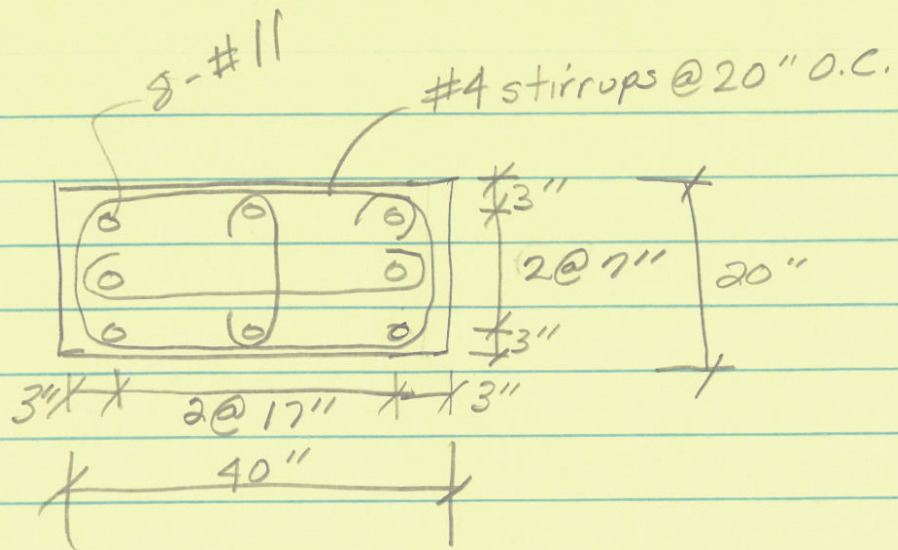 8-#11
#4 stirrups @ 20" O.C.
3"
2@7"
20"
3"
3"
2@17"
3"
40"